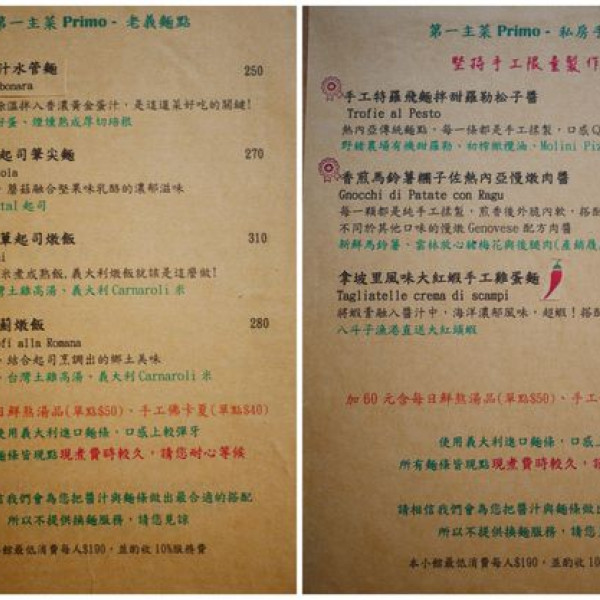 第一主菜 Primo - 老義麵點
汁水管麵 250
bonara
除溫拌入香濃黃金蛋汁，是這道菜好吃的關鍵!
好蛋、煙燻熟成厚切培根
起司筆尖麵 270
ola
、蘑菇融合堅果味乳酪的濃郁滋味
tal 起司
單起司燉飯 310
i
米煮成熟飯,義大利燉飯就該是這麼做!
台灣土雞高湯、義大利 Carnaroli 米
薊燉飯 280
fi alla Romana
、結合起司烹調出的鄉土美味
、台灣土雞高湯、義大利 Carnaroli 米
日鮮熬湯品(單點$50)、手工佛卡夏(單點$40)
使用義大利進口麵條，口感上較彈牙
麵條皆現點現煮費時較久，請您耐心等候
信我們會為您把醬汁與麵條做出最合適的搭配
所以不提供換麵服務，請您見諒
小館最低消費每人$190，並酌收 10%服務費
第一主菜 Primo - 私房手
堅持手工限量製作
手工特羅飛麵拌甜羅勒松子醬
Trofie al Pesto
熱內亞傳統麵點，每一條都是手工揉製，口感Q
野綾農場有機甜羅勒、初榨橄欖油、Molini Piz
香煎馬鈴薯麵子佐熱內亞慢燉肉醬
Gnocchi di Patate con Ragu
每一顆都是純手工揉製，煎香後外脆內軟，搭配
不同於其他口味的慢燉 Genovese 配方肉醬
新鮮馬鈴薯、雲林放心豬梅花與後腿肉(產銷履
拿坡里風味大紅蝦手工雞蛋麵
Tagliatelle crema di scampi
將蝦膏融入醬汁中，海洋濃郁風味，超蝦！搭配
八斗子漁港直送大紅頭蝦
加 60 元含每日鮮熬湯品(單點$50)、手工
使用義大利進口麵條，口感上
所有麵條皆現點現煮費時較久，
請相信我們會為您把醬汁與麵條做出
所以不提供換麵服務，請您
本小館最低消費每人$190，並酌收 10